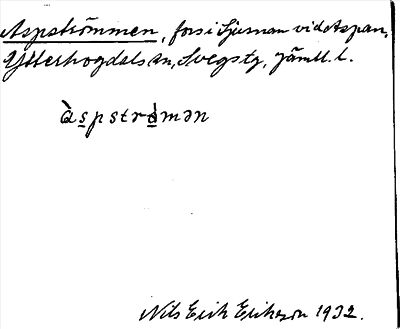 Aspströmmen, fors i Ljusnan vid Aspan,
Ytterhogdals sn, Svegs tg, Jämtl. l.
àspstrǻmən
Nils Erik Erikson 1932.